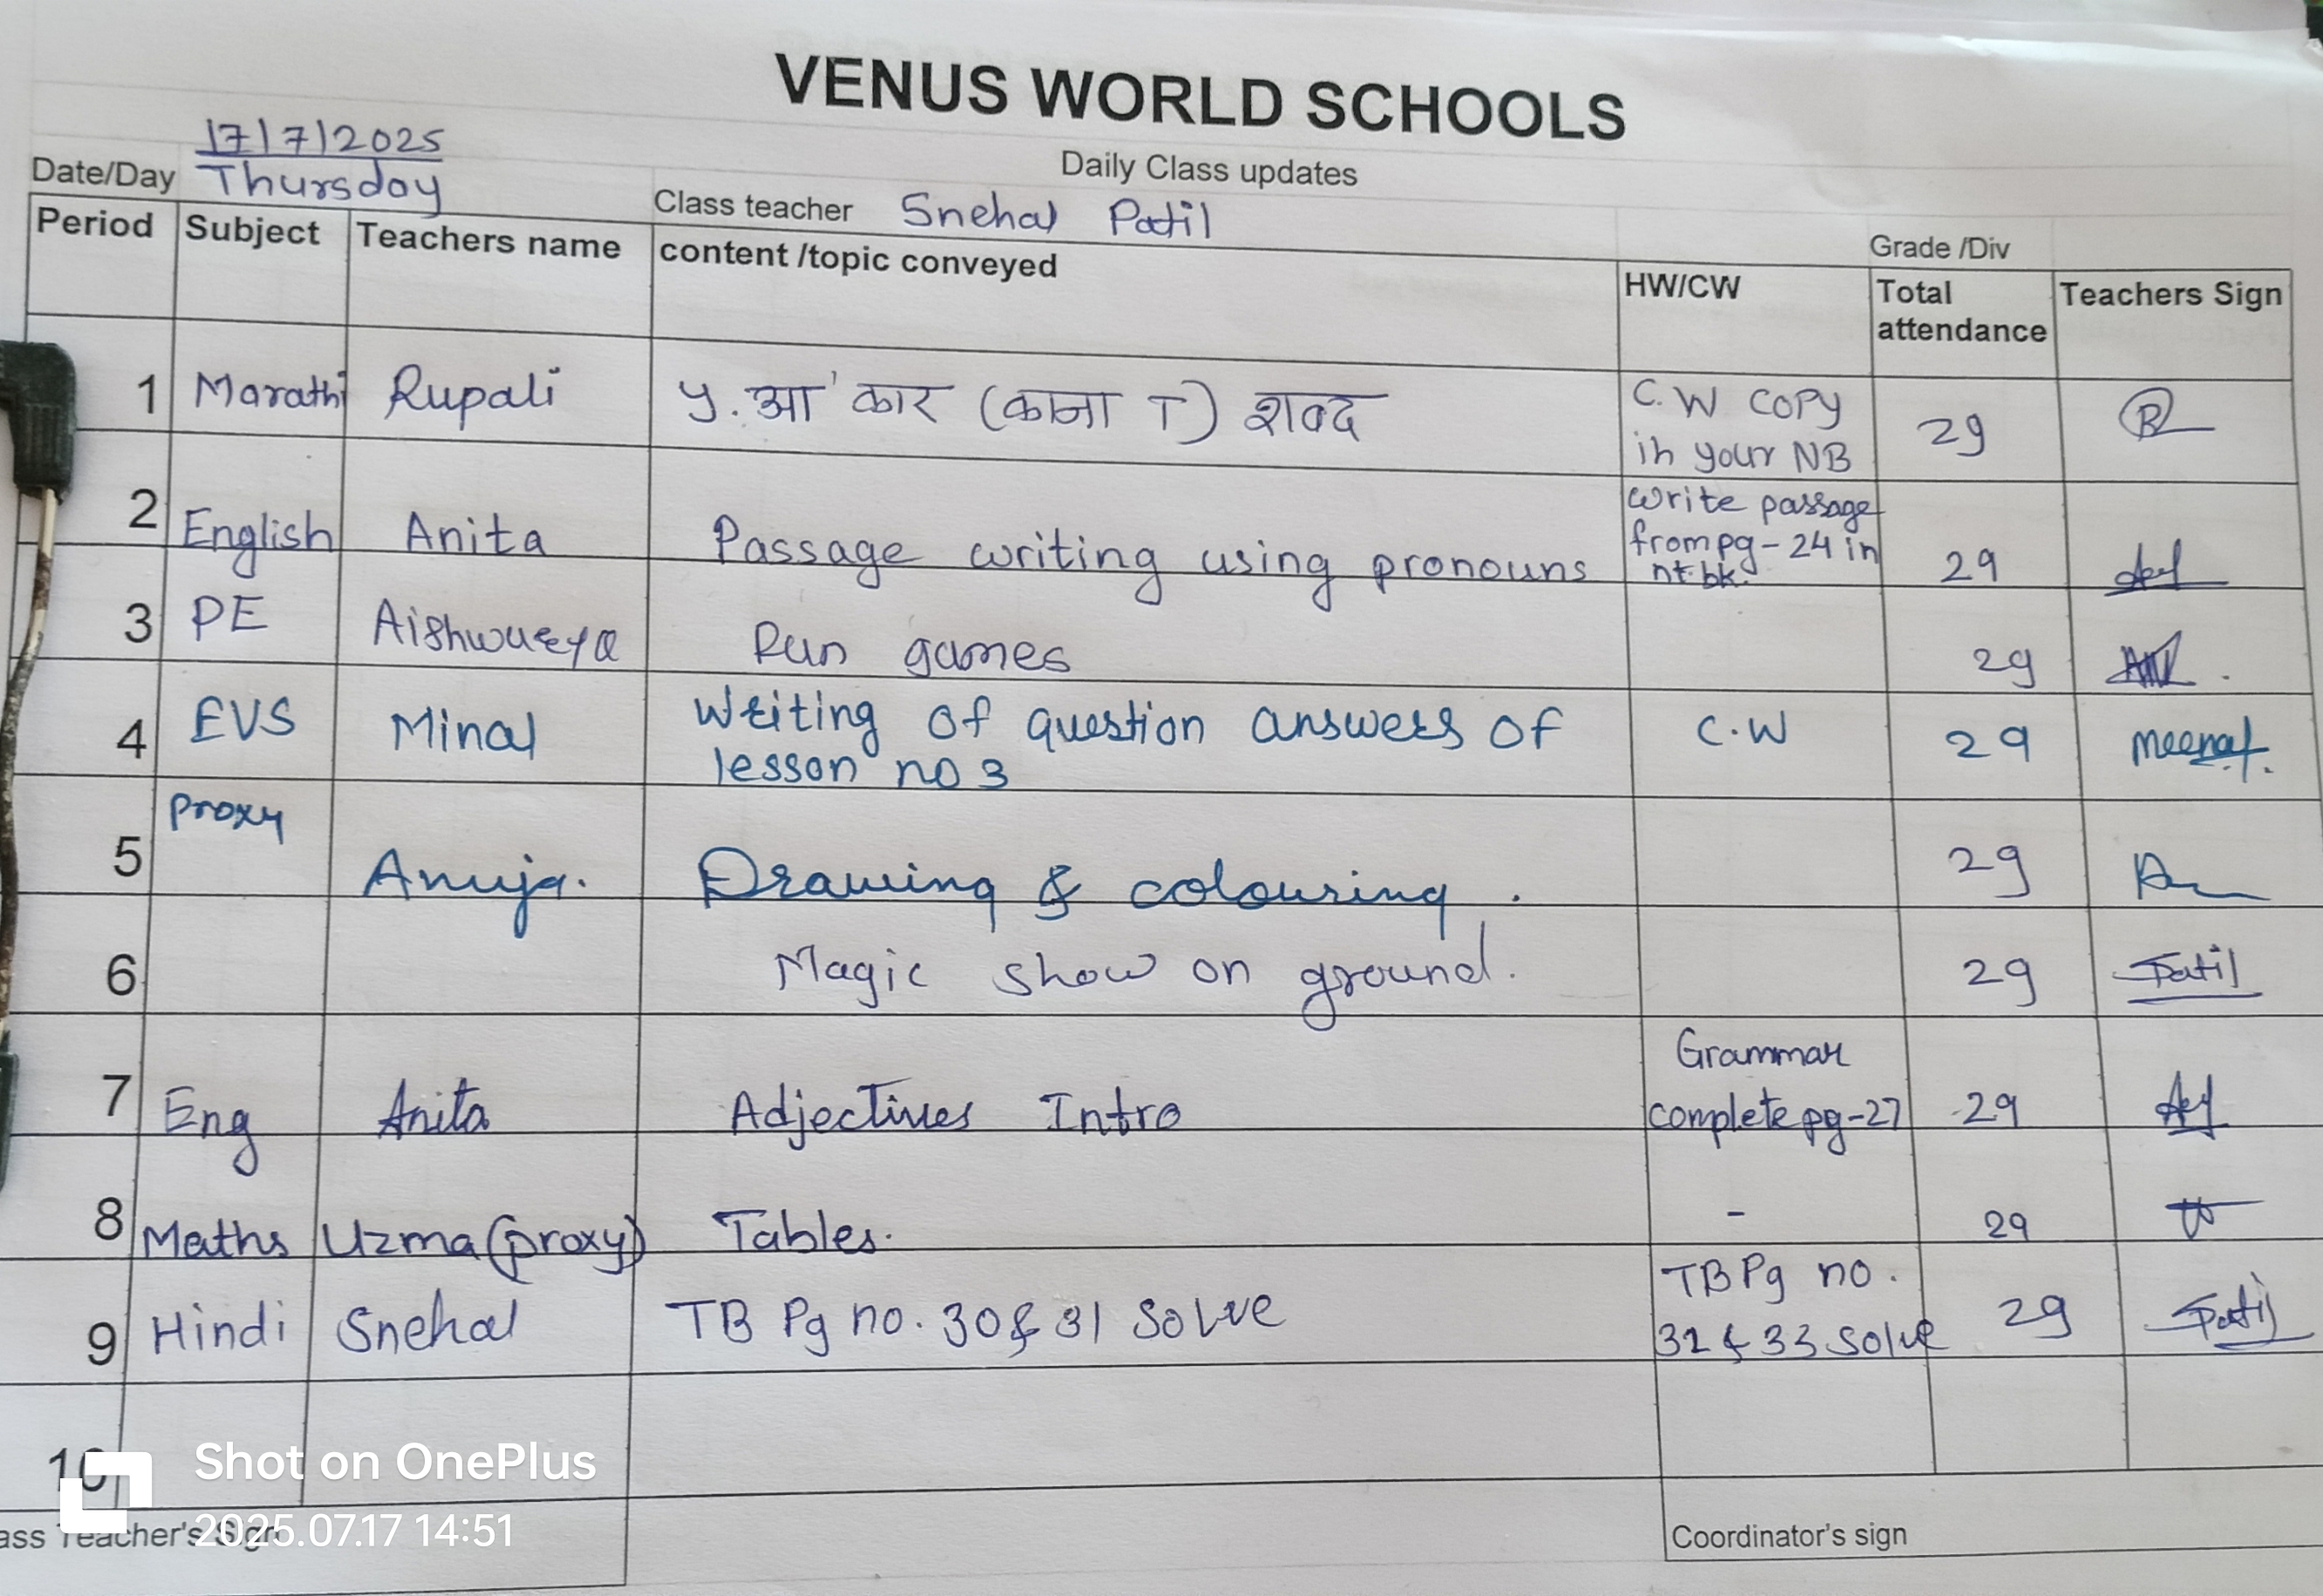 VENUS WORLD SCHOOLS
Daily Class updates
17/7/2025
Date/Day Thursday
Class teacher Snehal Patil
Grade /Div
Period Subject Teachers name content /topic conveyed HW/CW Total attendance Teachers Sign
1 Marathi Rupali y. आ' कार (काना ा) शब्द C.W COPY in your NB 29
2 English Anita Passage writing using pronouns write passage from pg-24 in nt.bk. 29
3 PE Aishwarya Run games 29
4 EVS Minal Writing of question answers of lesson no 3 C.W 29 Meenal
5 Proxy Anuja. Drawing & colouring. 29
6 Magic show on ground. 29 Patil
7 Eng Anita Adjectives Intro Grammar complete pg-27 29
8 Maths Uzma (proxy) Tables. - 29
9 Hindi Snehal TB Pg no. 30 & 31 Solve TB Pg no. 32 & 33 Solve 29 Patil
10
ass Teacher's Sign
Coordinator's sign
Shot on OnePlus
2025.07.17 14:51